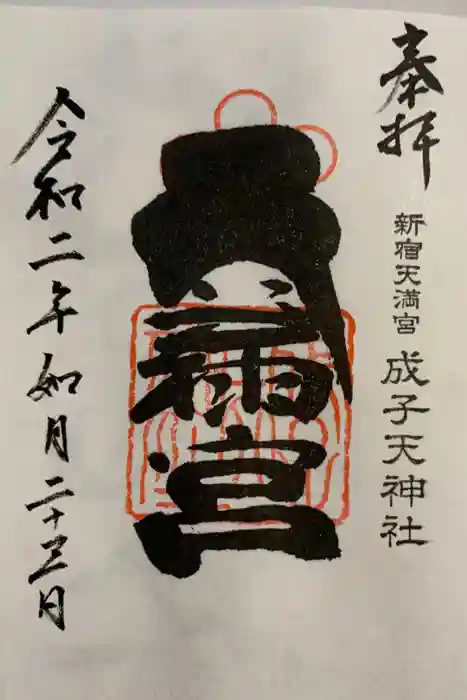 奉拝
新宿天満宮 成子天神社
天満宮
令和二年如月二十三日